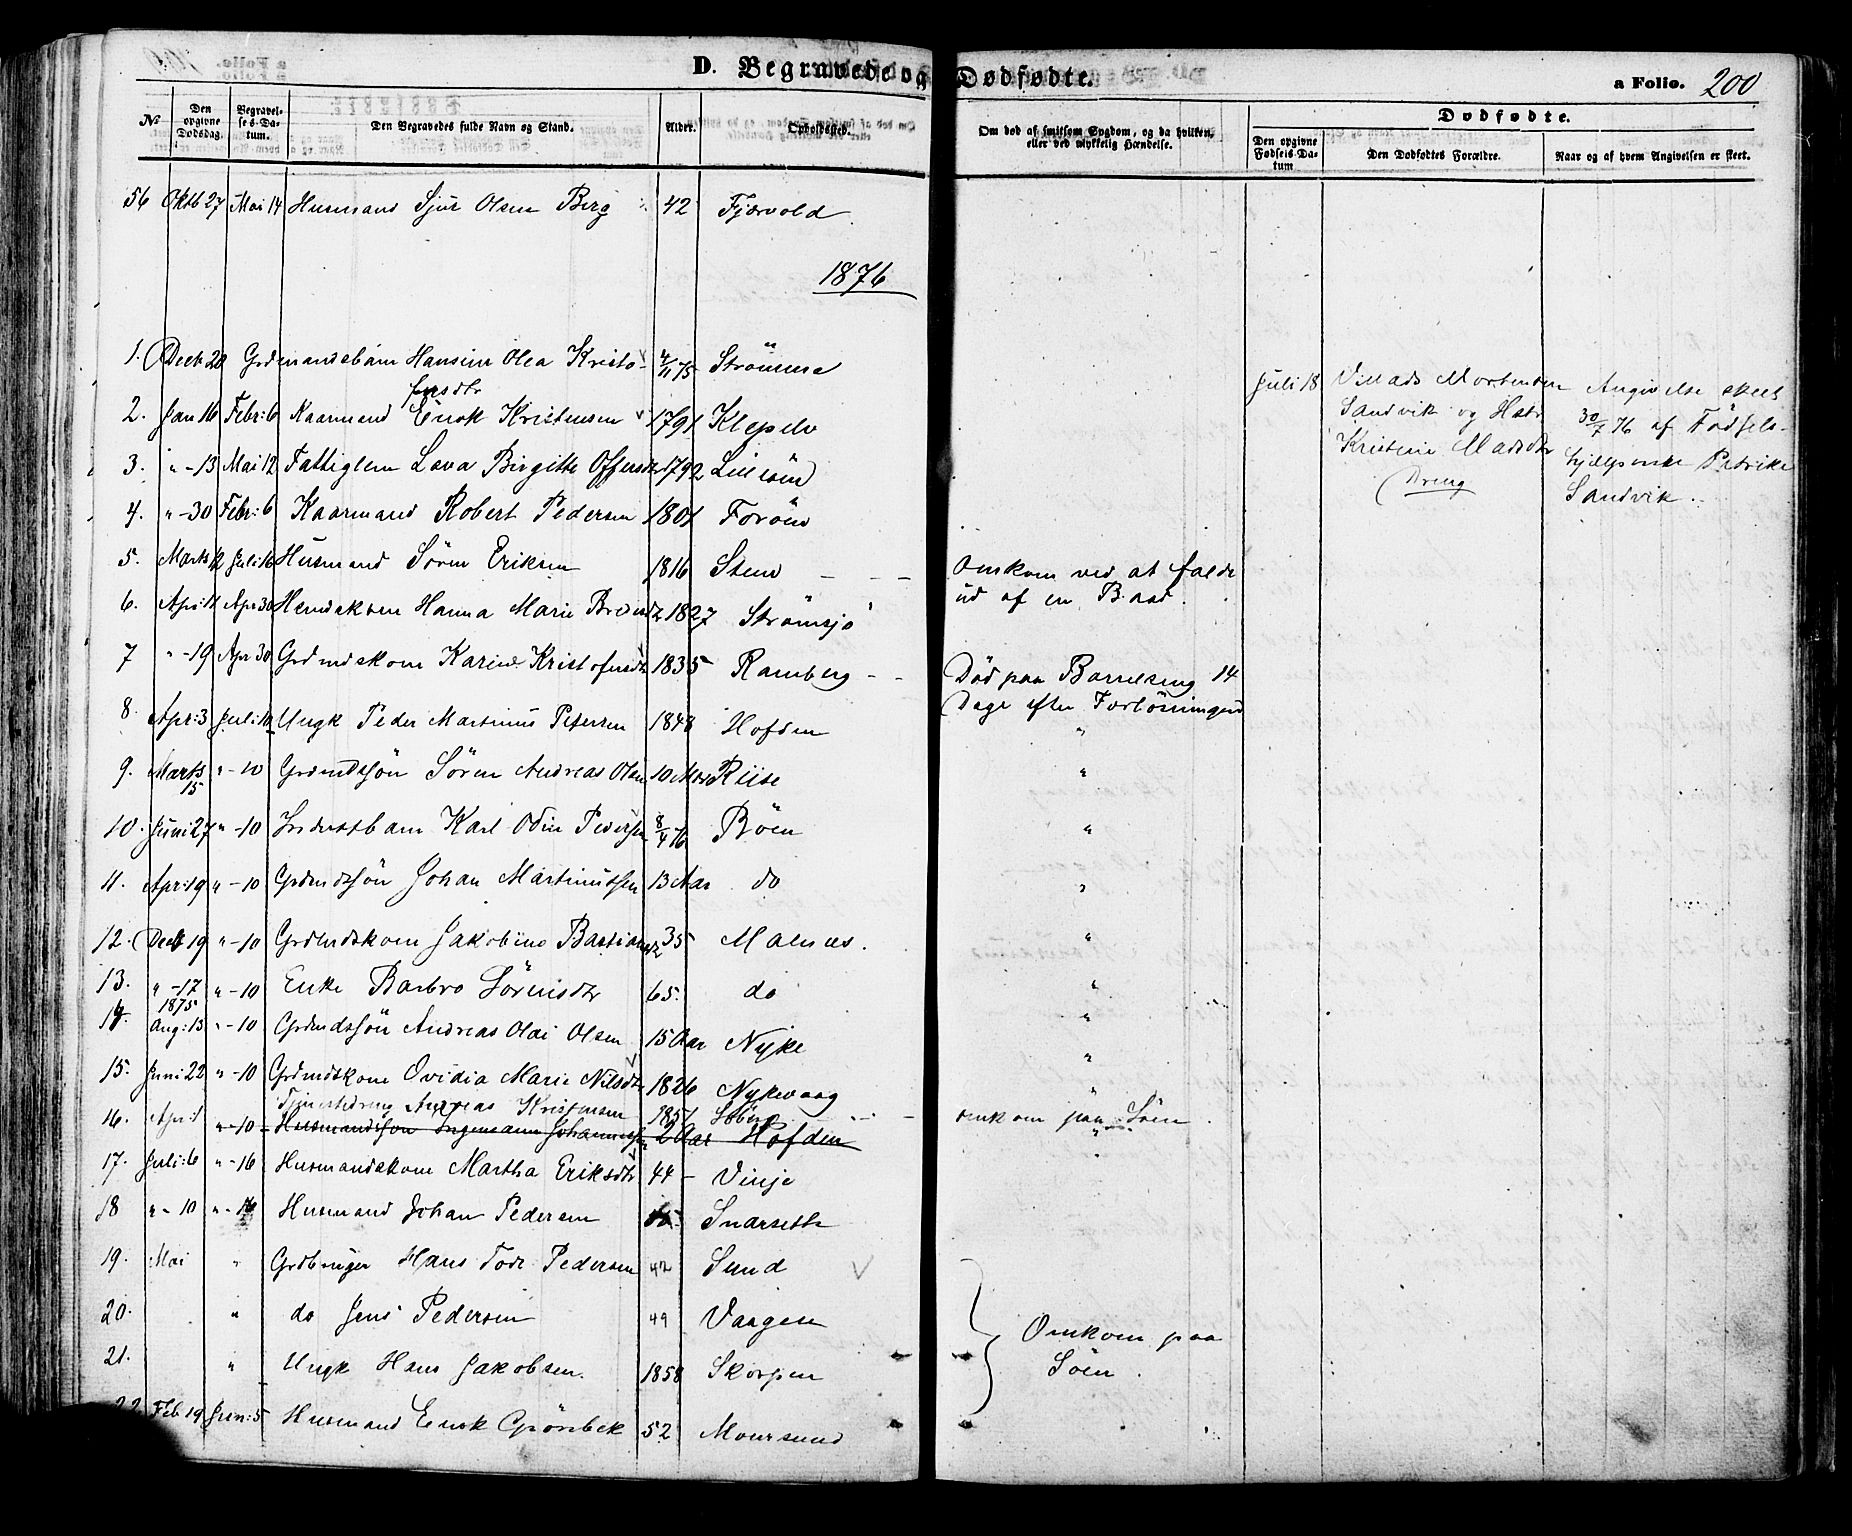 D. Begravede og Dødfødte. a Folio. 200
No Den opgivne Dødsdag. Begravelses-Datum. Den Begravedes fulde Navn og Stand. Alder. Opholdssted. Om død af smitsom Sygdom, og da hvilken, eller ved ulykkelig Hændelse. Dødfødte.
Den opgivne Fødsels-Datum Den Dødfødtes Forældre. Naar og af hvem Angivelsen er skeet.
56 Oktb 27 Mai 14 Husmand Sjur Olsen Berg 42 Fjærvold
1876
1. Decb 20 Grdmandsbarn Hansine Olea Kristofersdtr 4/11 75 Strömme
2. Jan 16 Febr: 6 Kaarmand Enok Kristensen 1791 Klepelv
3. " -13 Mai 12 Fattiglem Lava Birgitte Offersdtr 1792
4. " -30 Febr: 6 Kaarmand Robert Pedersen 1801 Foröen
5. Marts 12 Juli 16 Husmand Sören Eriksen 1816 Steen - - - Omkom ved at falde
ud af en Baad.
6. Apr: 11 Apr 30 Hanna Marie 1827 Strömsjö
7 " -19 Apr 30 Grdmdskone Karine Kristofersdtr 1835 Ramberg - - Död paa Barselseng 14
Dage efter Forlösningen
8. Apr: 3 Juli: 10 Ungk Peder Martinus Petersen 1848 Hofden "
9. Marts 15 " -10 Grdmdssön Sören Andreas Olsen 10 Mdr Riise "
10. Juni 27 " -10 Inderstbarn Karl Odin Pedersen 8/4 76 Böen "
11. Apr: 19 " -10 Grdmdssön Johan Martinussen 13 Aar do "
12. Decb 19 " -10 Grdmdskone Jakobine Bastiansdtr 35 Malnes. "
13. " -17 " -10 Enke Barbro Sörensdtr 65. do "
14. 1875 Aug: 13 " -10 Grdmdssön Andreas Olai Olsen 15 Aar Nyke "
15. Juni 22 " -10 Grdmdskone Ovidia Marie Nilsdtr 1826 Nykvaag "
16. Apr: 1 Tjenestedreng Andreas Kristensen 1857 - - - omkom paa Söen.
" -10 Husmandssön Ingemann Johannessen 2 Aar Hofden "
17. Juli: 6 " -16 Husmandskone Martha Eriksdtr 44 - Vinje
18 " - 10 " -16 Husmand Johan Pedersen Snarseth
19. Mai " Grdbruger Hans Tode Pedersen 42 Sund
20. " do Jens Pedersen 49 Vaagen Omkom paa
21. " Ungk Hans Jakobsen. 1858 Skorpen Söen.
22 Feb 19 Jun: 5 Husmand Enok Grönbek 52 Moursund
Juli 18 Villads Mortensen
Sandvik og Hstr
Kristine Madsdtr
(Dreng
Angivelse skeet
30/7 76 af Födsels-
hjælperske Petrike
Sandvik.